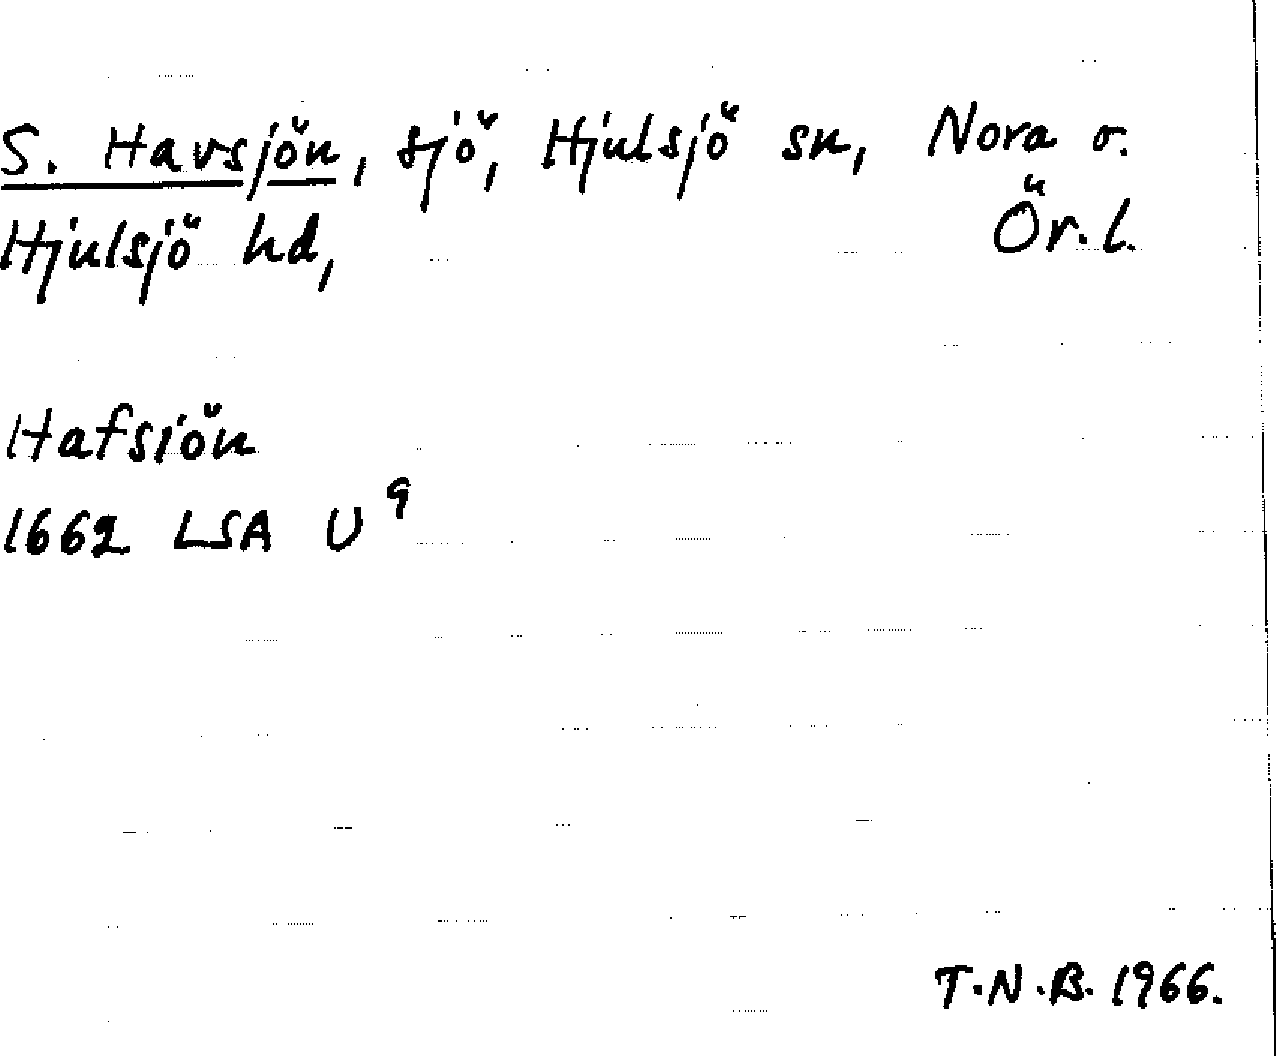 S. Havsjön, sjö, Hjulsjö sn, Nora o.
Hjulsjö hd, Ör. l.
Hafsiön
1662 LSA U⁹
T.N.B. 1966.